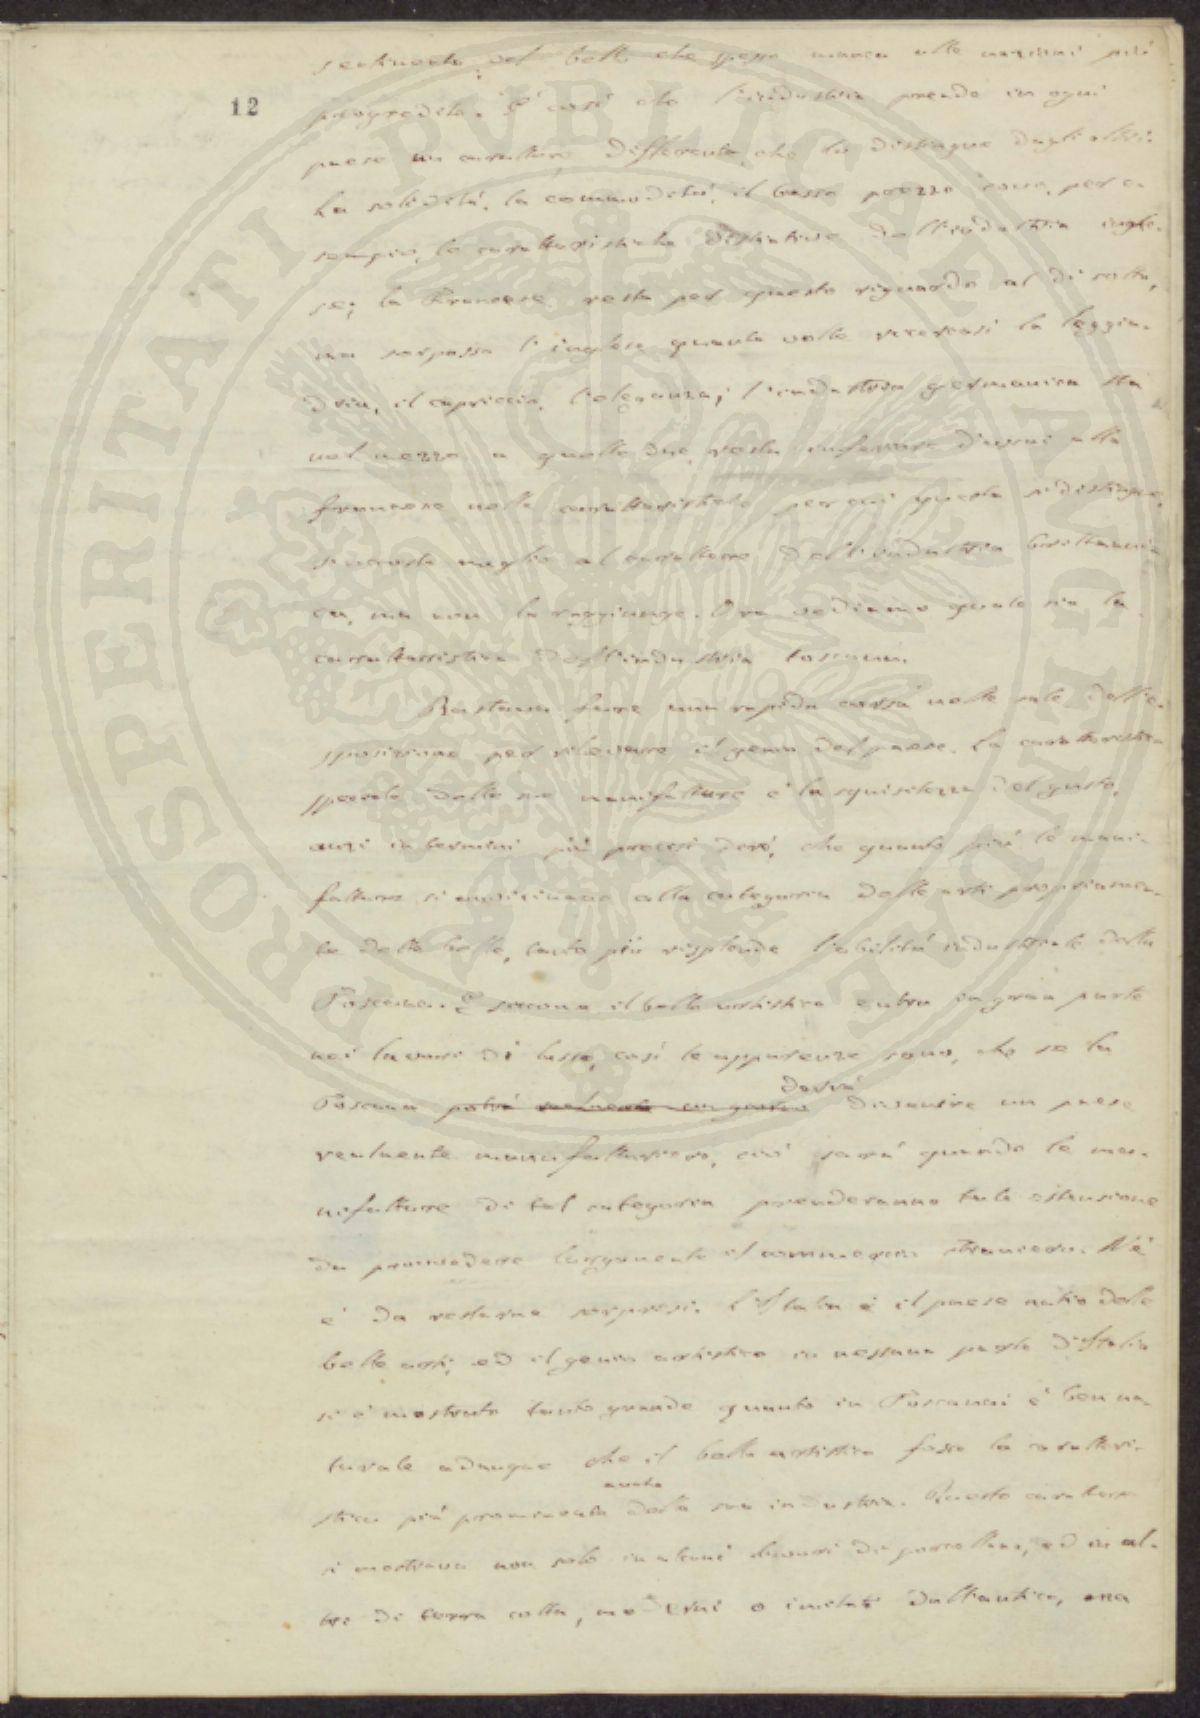 sentimento del bello che spesso manca alle nazioni più
12
progredite. E' così che l'industria prende in ogni
paese un carattere differente che la distingue dagli altri.
La solidità, la commodità, il basso prezzo sono, per e-
sempio, le caratteristiche distintive dell'industria ingle-
se; la Francese resta per questo riguardo al di sotto,
ma sorpassa l'inglese quante volte ricercasi la leggia-
dria, il capriccio, l'eleganza; l'industria germanica sta
nel mezzo a quelle due, resta inferiore alla
francese nelle caratteristiche per cui questa si distingue,
si accosta meglio al carattere dell'industria brittanni-
ca, ma non la raggiunge. Ora vediamo quale sia la
caratteristica dell'industria toscana.
Bastava fare una rapida corsa nelle sale dell'e-
sposizione per rilevare il genio del paese. La caratteristica
speciale delle sue manifatture è la squisitezza del gusto,
anzi in termini più precisi dirò, che quanto più le mani-
fatture si avvicinano alla categoria delle arti propriamen-
te dette belle, tanto più risplende l'abilità industriale della
Toscana. E siccome il bello artistico entra in gran parte
nei lavori di lusso, così le apparenze sono, che se la
dovrà
Toscana potrà realmente un giorno divenire un paese
realmente manifatturiero, ciò sarà quando le ma-
nifatture di tal categoria prenderanno tale estensione
da provvedere largamente il commercio straniero. Nè
è da restarne sorpresi. L'Italia è il paese natio delle
belle arti, ed il genio artistico in nessuna parte d'Italia
si è mostrato tanto grande quanto in Toscana; è ben na-
turale adunque che il bello artistico fosse la caratteri-
anche
stica più prominente della sua industria. Questo carattere
si mostrava non solo in alcuni lavori di porcellana, ed in al-
tri di terra cotta, moderni o imitati dall'antico, ma